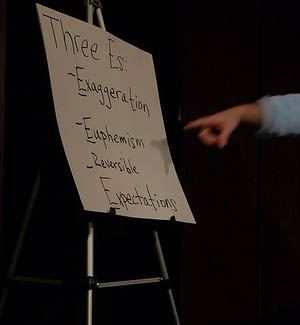 Three Es:
-Exaggeration
-Euphemism
-Reversible
Expectations